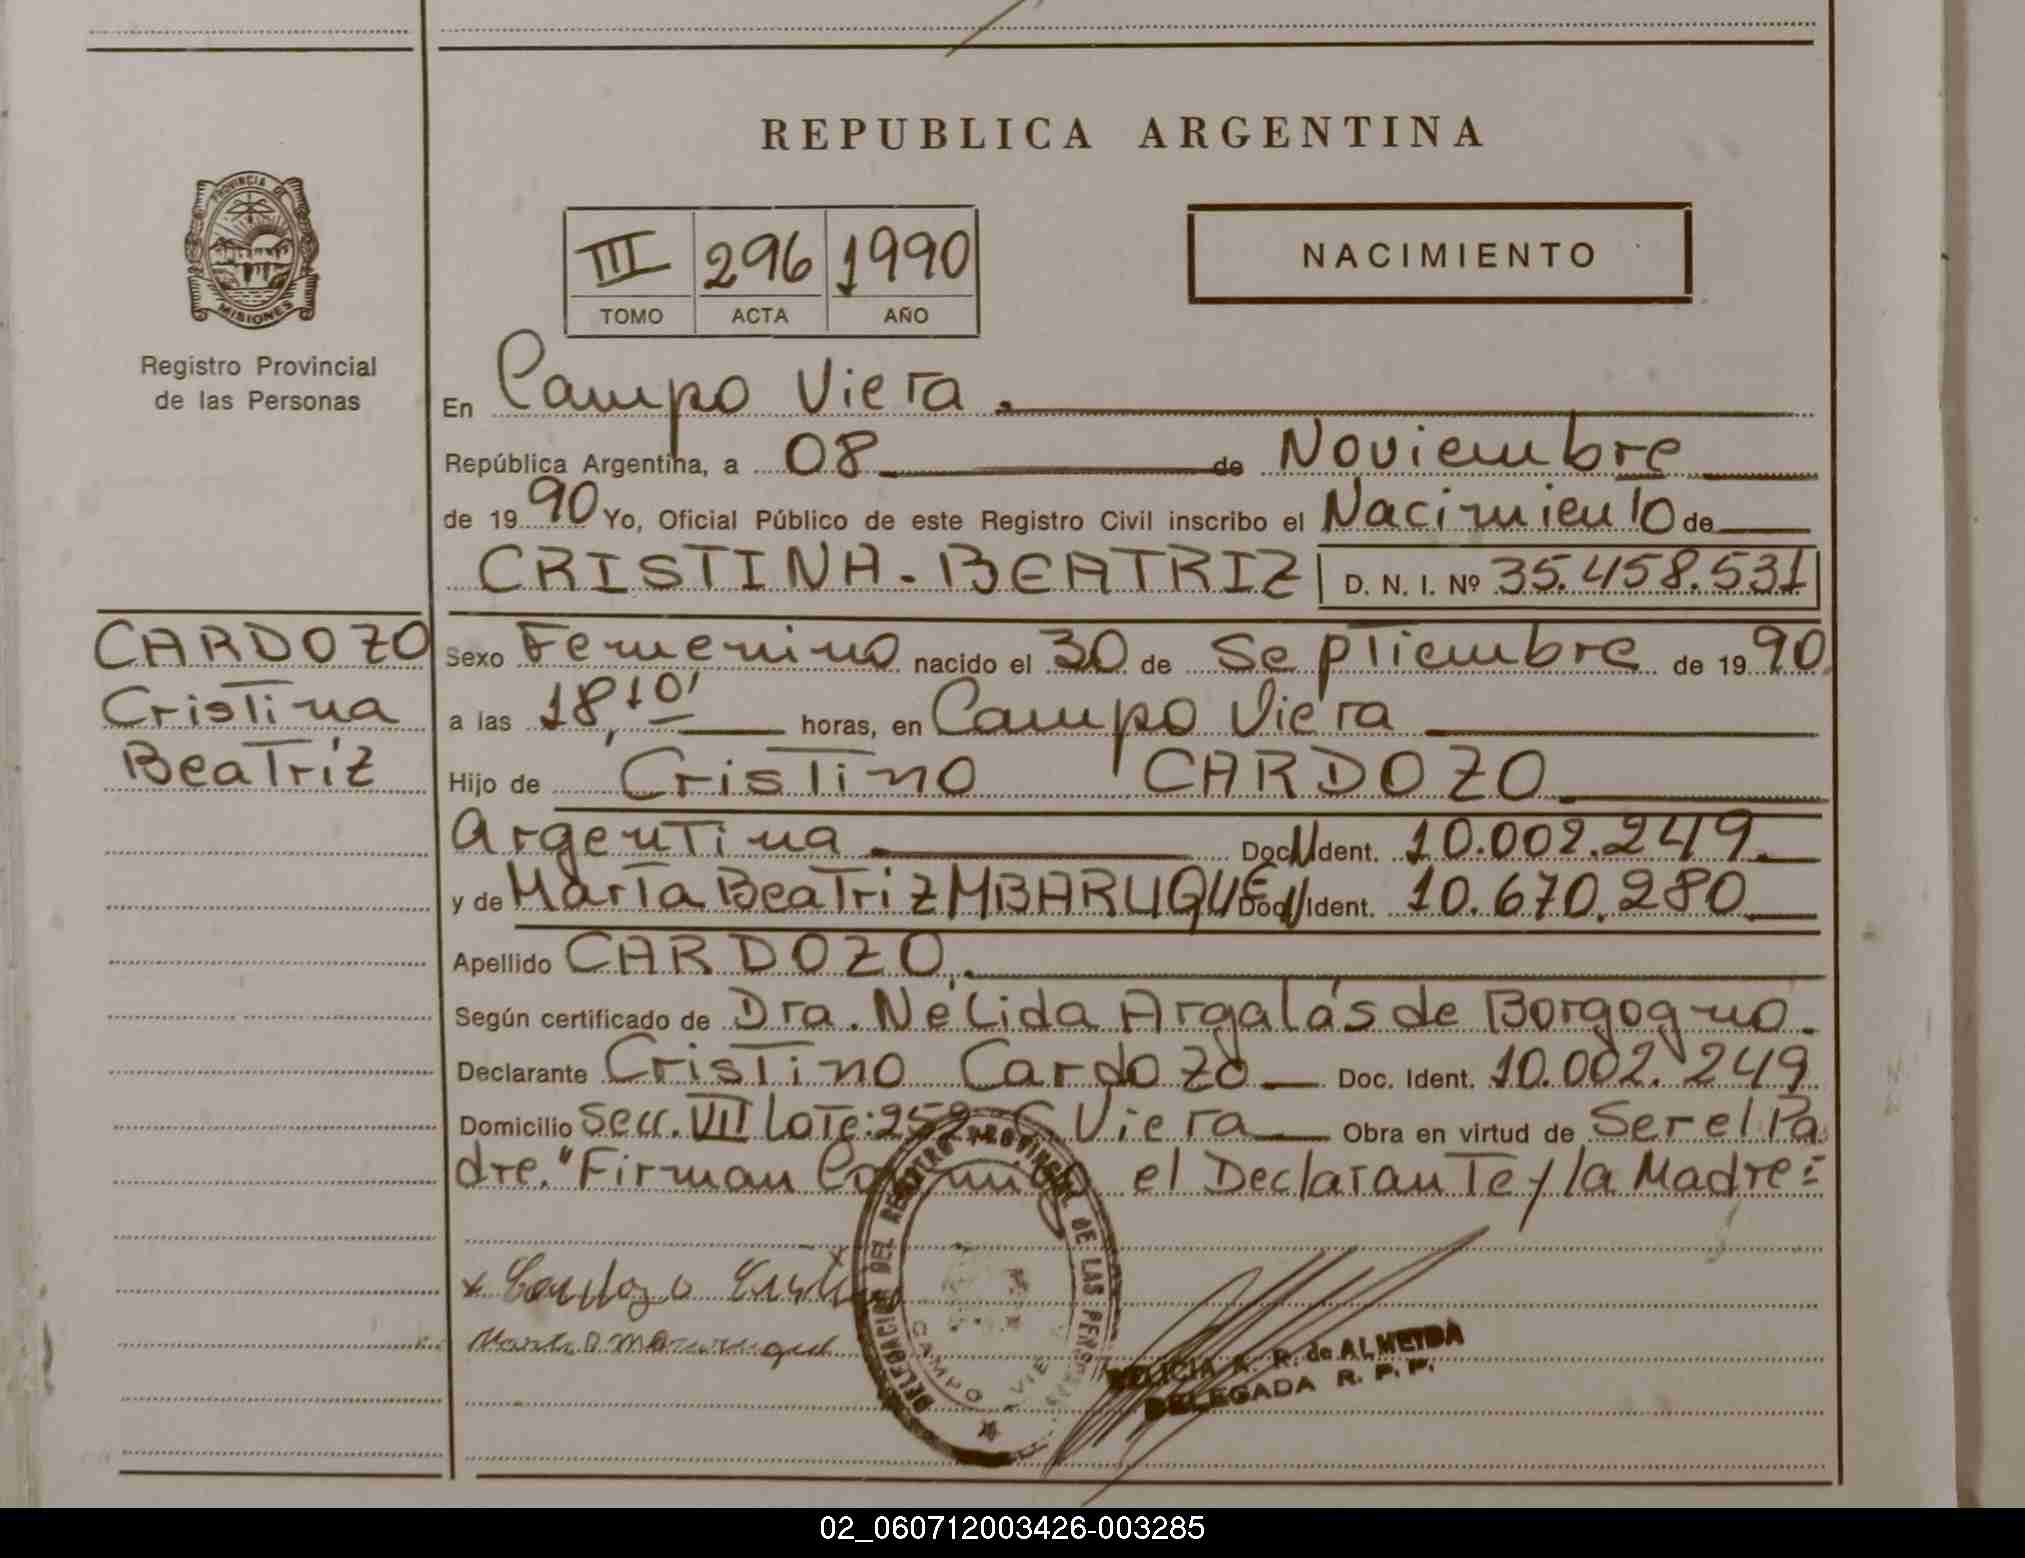 REPUBLICA ARGENTINA
PROVINCIA DE
MISIONES
Registro Provincial
de las Personas
III 296 1990
TOMO ACTA AÑO
NACIMIENTO
En Campo Viera.
República Argentina, a 08 de Noviembre
de 1990 Yo, Oficial Público de este Registro Civil inscribo el Nacimiento de
CRISTINA-BEATRIZ D. N. I. Nº 35.458.531
CARDOZO
Cristina
Beatriz
Sexo Femenino nacido el 30 de Septiembre de 1990
a las 18,10' horas, en Campo Viera
Hijo de Cristino CARDOZO
Argentina Doc. Ident. 10.002.249
y de Marta Beatriz MBARUQUÉ Doc. Ident. 10.670.280
Apellido CARDOZO.
Según certificado de Dra. Nélida Argalás de Borgogno.
Declarante Cristino Cardozo Doc. Ident. 10.002.249
Domicilio Secc. VIII Lote: 252 C Viera Obra en virtud de Ser el Pa
dre. "Firman Conmigo el Declarante y la Madre=
Cardozo
DELEGACION DEL REGISTRO PROVINCIAL DE LAS PERSONAS
CAMPO VIERA
A. R. de ALMEIDA
DELEGADA R. P. P.
02_060712003426-003285